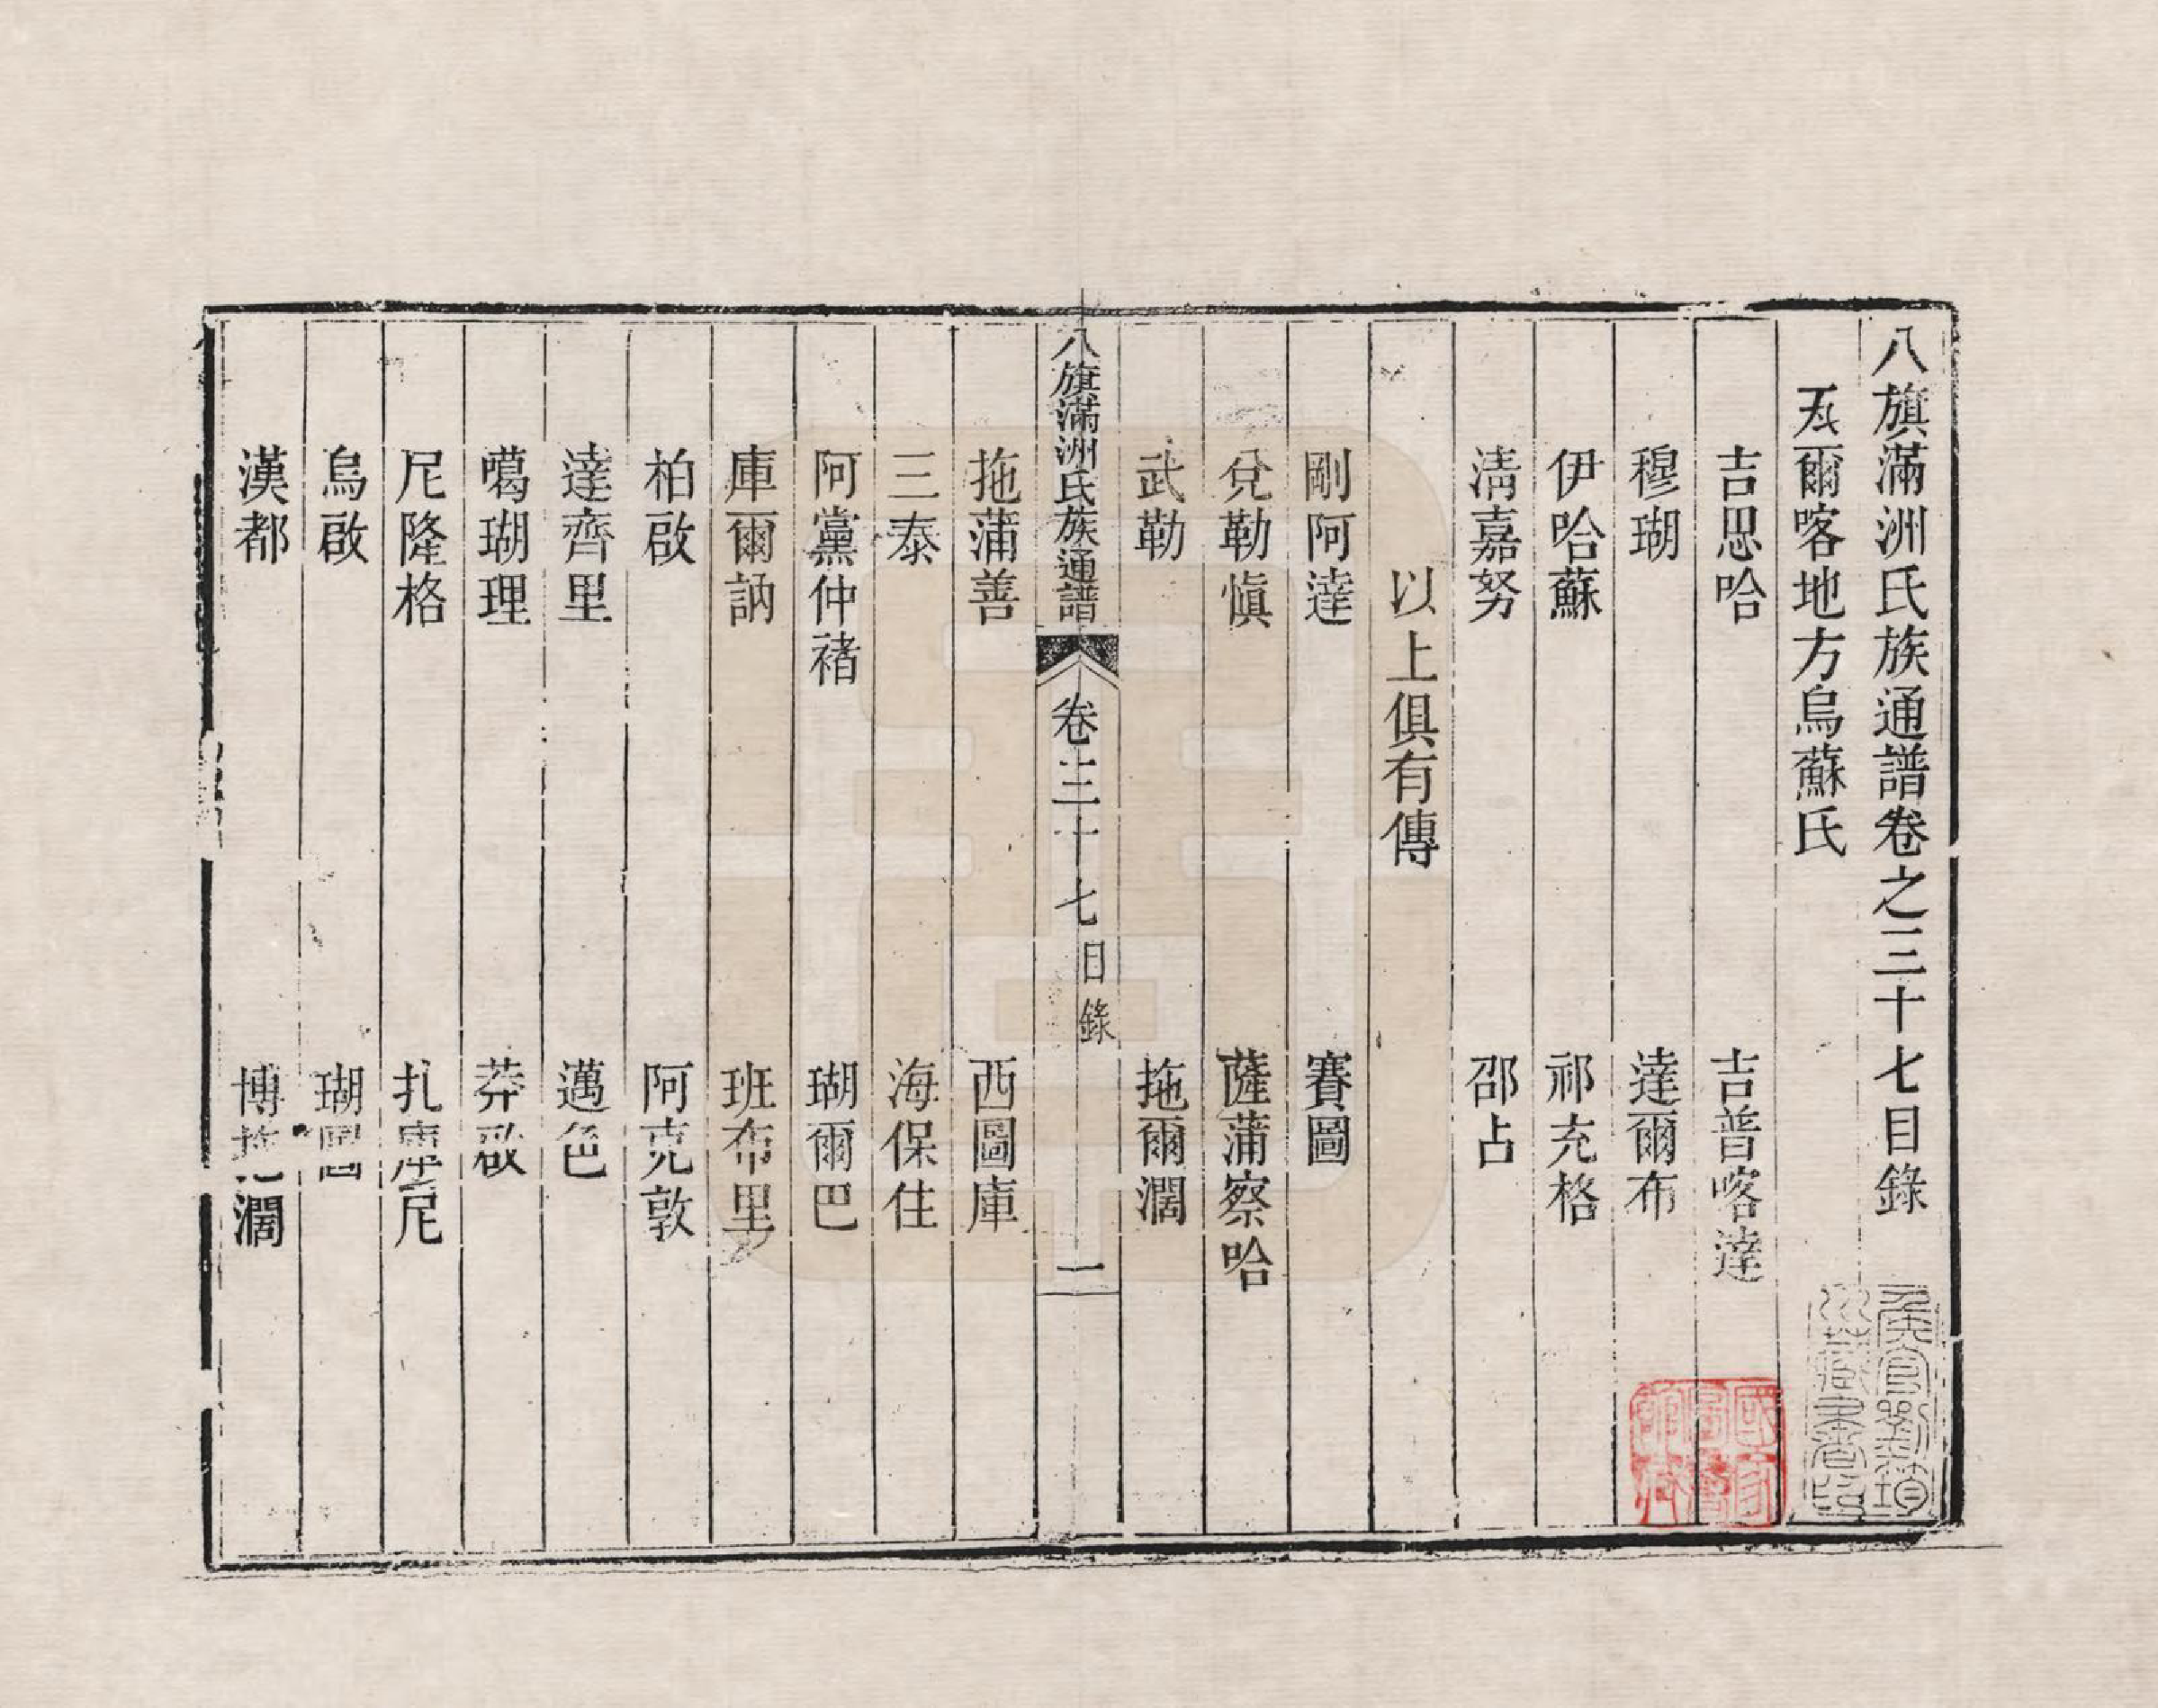 八旗滿洲氏族通譜卷之三十七目錄
瓦爾喀地方烏蘇氏
吉思哈 吉普喀達
穆瑚 達爾布
伊哈蘇 祁充格
淸嘉努 邵占
以上俱有傳
剛阿達 賽圖
兌勒愼 薩蒲察哈
武勒 拖爾濶
八旗滿洲氏族通譜 卷三十七目錄 一
拖蒲善 西圖庫
三泰 海保住
阿黨仲禇 瑚爾巴
庫爾訥 班布里
柏啟 阿克敦
達齊里 邁色
噶瑚理 莽啟
尼隆格 扎庫尼
烏啟 瑚圖
漢都 博拖濶
侯官劉筠川藏書印
國家圖書館藏